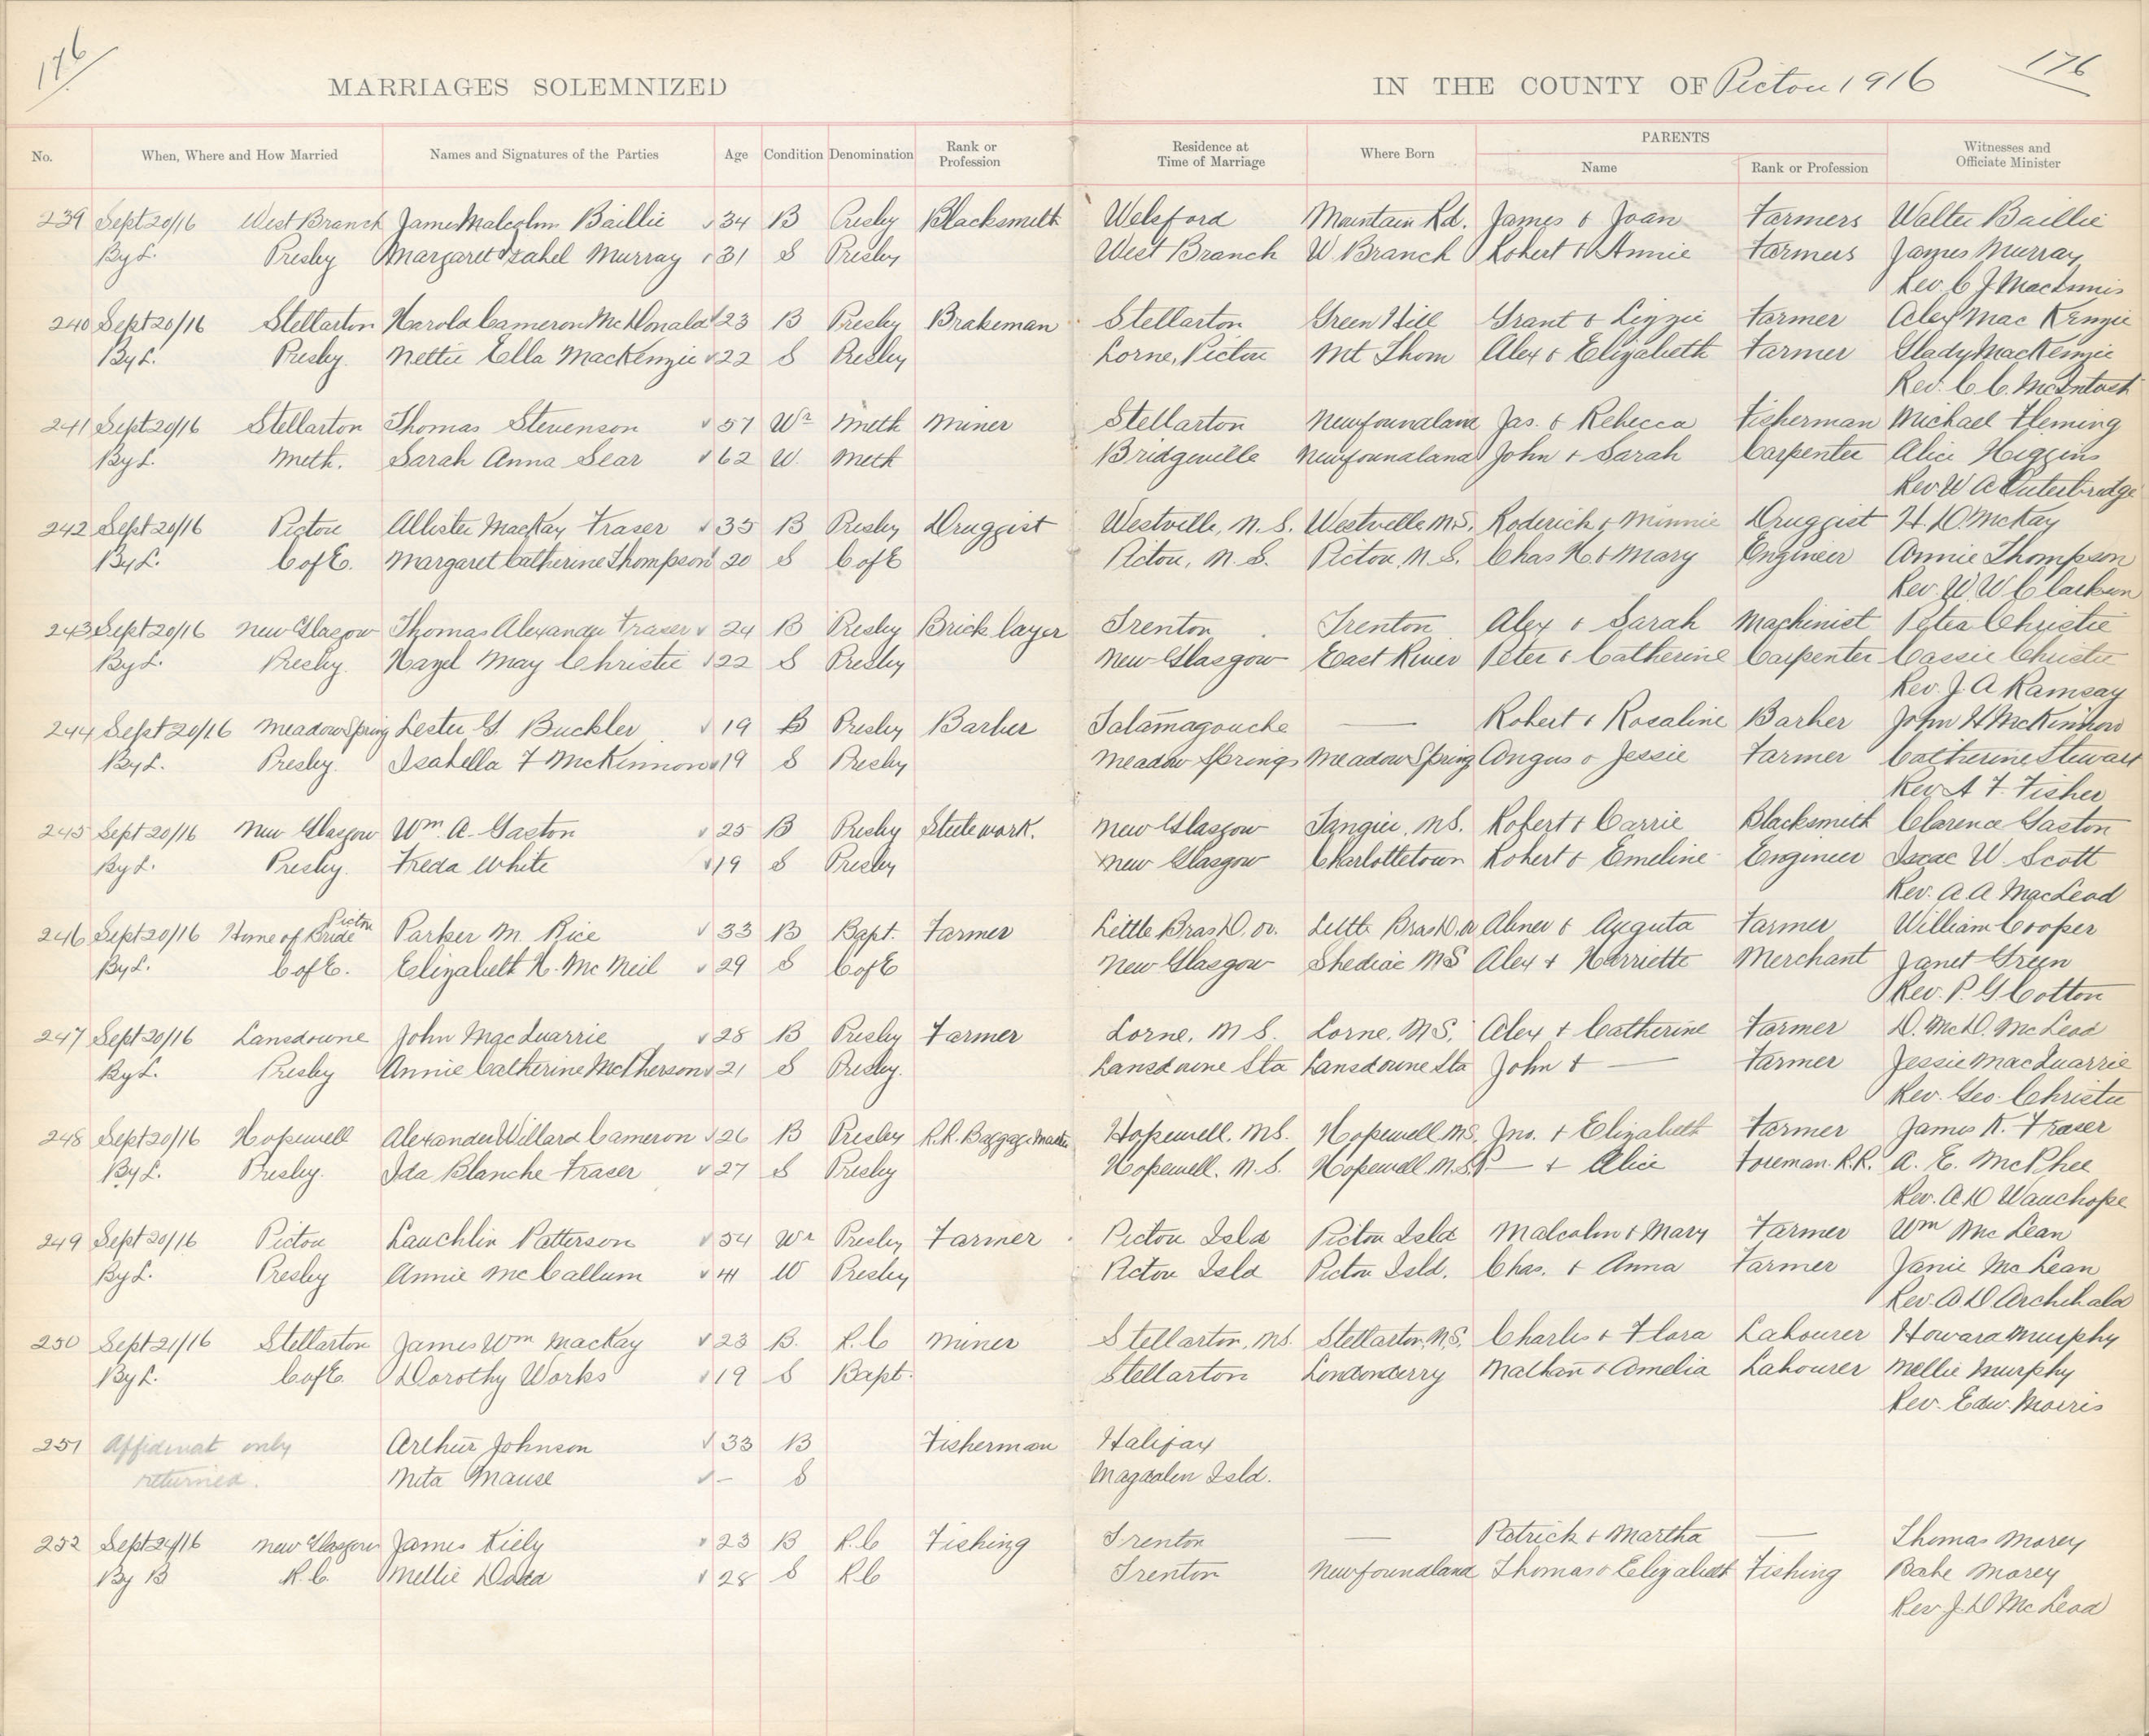 176
176
MARRIAGES SOLEMNIZED IN THE COUNTY OF Pictou 1916
No. When, Where and How Married Names and Signatures of the Parties Age Condition Denomination Rank or Profession Residence at Time of Marriage Where Born PARENTS Name Rank or Profession Witnesses and Officiate Minister
239 Sept 20/16 West Branch James Malcolm Baillie 34 B Presby Blacksmith Welsford Mountain Rd. James & Joan Farmers Walter Baillie
By L. Presby Margaret Izabel Murray 31 S Presby West Branch W. Branch Robert & Annie Farmers James Murray
Rev. C J MacInnis
240 Sept 20/16 Stellarton Harold Cameron McDonald 23 B Presby Brakeman Stellarton Green Hill Grant & Lizzie Farmer Alex MacKenzie
By L. Presby. Nettie Ella MacKenzie 22 S Presby Lorne, Pictou Mt Thom Alex & Elizabeth Farmer Glady MacKenzie
Rev. C. C. McIntosh
241 Sept 20/16 Stellarton Thomas Stevenson 57 Wr Meth Miner Stellarton Newfoundland Jas. & Rebecca Fisherman Michael Fleming
By L. Meth. Sarah Anna Sear 62 W. Meth Bridgeville Newfoundland John & Sarah Carpenter Alice Higgins
Rev W A Outerbridge
242 Sept 20/16 Pictou Allister MacKay Fraser 35 B Presby Druggist Westville, N.S. Westville N.S. Roderick & Minnie Druggist H. D. McKay
By L. C of E. Margaret Catherine Thompson 20 S C of E Pictou, N.S. Pictou, N.S. Chas H. & Mary Engineer Annie Thompson
Rev. W W Clarkson
243 Sept 20/16 New Glasgow Thomas Alexander Fraser 24 B Presby Brick layer Trenton Trenton Alex & Sarah Machinist Peter Christie
By L. Presby. Hazel May Christie 22 S Presby New Glasgow East River Peter & Catherine Carpenter Cassie Christie
Rev. J. A Ramsay
244 Sept 20/16 Meadow Spring Lester G. Buckler 19 B Presby Barber Tatamagouche — Robert & Rosaline Barber John H McKinnon
By L. Presby. Isabella F McKinnon 19 S Presby Meadow Springs Meadow Spring Angus & Jessie Farmer Catherine Stewart
Rev A. F. Fisher
245 Sept 20/16 New Glasgow Wm. A. Gaston 25 B Presby Steelwork. New Glasgow Tangier, N.S. Robert & Carrie Blacksmith Clarence Gaston
By L. Presby. Freda White 19 S Presby New Glasgow Charlottetown Robert & Emeline Engineer Isaac W. Scott
Rev. A. A MacLeod
246 Sept 20/16 Home of Bride Pictou Parker M. Rice 33 B Bapt. Farmer Little Bras D. or. Little Bras D. or Abner & Auguta Farmer William Cooper
By L. C of E. Elizabeth H. McNeil 29 S C of E New Glasgow Shediac NS Alex & Harriette Merchant Janet Green
Rev. P. G Cotton
247 Sept 20/16 Lansdowne John MacQuarrie 28 B Presby Farmer Lorne, N.S. Lorne, N.S. Alex & Catherine Farmer D. McD. McLeod
By L. Presby Annie Catherine McPherson 21 S Presby. Lansdowne Sta Lansdowne Sta John & — Farmer Jessie MacQuarrie
Rev. Geo. Christie
248 Sept 20/16 Hopewell Alexander Willard Cameron 26 B Presby R.R. Baggage Master Hopewell. N.S. Hopewell N.S. Jno. & Elizabeth Farmer James K. Fraser
By L. Presby. Ida Blanche Fraser 27 S Presby Hopewell. N.S. Hopewell N.S. — & Alice Foreman. R.R. A. E. McPhee
Rev. A D Wauchope
249 Sept 20/16 Pictou Lauchlin Patterson 54 Wr Presby Farmer Pictou Isld Pictou Isld Malcolm & Mary Farmer Wm McLean
By L. Presby Annie McCallum 41 W Presby Pictou Isld Pictou Isld. Chas. & Anna Farmer Janie McLean
Rev. A. D Archibald
250 Sept 21/16 Stellarton James Wm MacKay 23 B. R.C Miner Stellarton, N.S. Stellarton, N.S. Charles & Flora Labourer Howard Murphy
By L. C of E. Dorothy Works 19 S Bapt. Stellarton Londonderry Nathan & Amelia Labourer Mellie Murphy
Rev. Edw. Morris
251 Affidavat only Arthur Johnson 33 B Fisherman Halifax
returned. Neta Mause – S Magdalen Isld.
252 Sept 24/16 New Glasgow James Kiely 23 B R.C Fishing Trenton — Patrick & Martha — Thomas Morey
By B R.C. Mellie Dodd 28 S R.C Trenton Newfoundland Thomas & Elizabeth Fishing Babe Morey
Rev. J. D McLeod